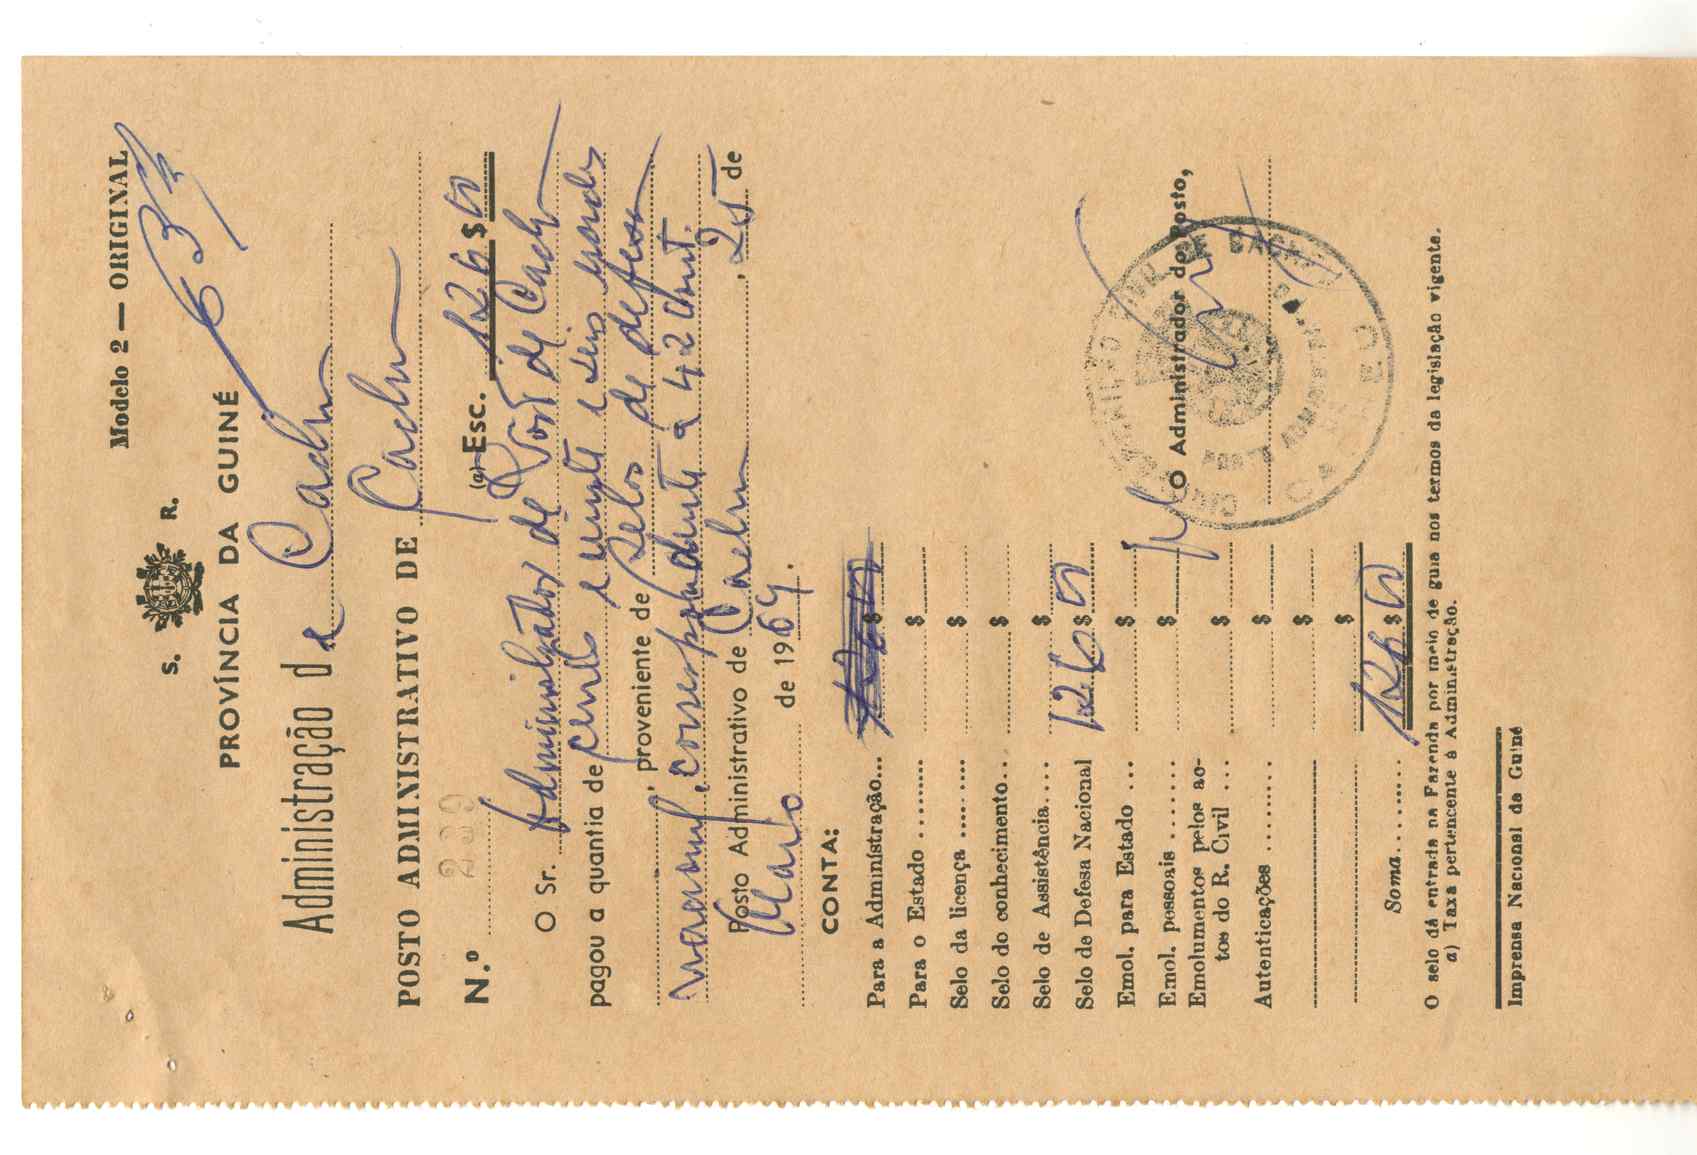 Modelo 2 — ORIGINAL
633
S. R.
PROVÍNCIA DA GUINÉ
Administração de Cacheu
POSTO ADMINISTRATIVO DE Cacheu
N.º 239 (a) Esc. 126$00
O Sr. Administrador de Posto de Cacheu
pagou a quantia de cento e vinte e seis escudos
, proveniente de selos de defesa
nacional, correspondente a 42
Posto Administrativo de Cacheu, 25 de
Maio de 1964.
CONTA:
Para a Administração... $
Para o Estado ........ $
Selo da licença ........ $
Selo do conhecimento... $
Selo de Assistência.... $
Selo de Defesa Nacional 126$00
Emol. para Estado ... $
Emol. pessoais ...... $
Emolumentos pelos ac-
tos do R. Civil ... $
Autenticações ........ $
$
$
Soma ....... 126$00
O Administrador do Posto,
CACHEU
O selo dá entrada na Fazenda por meio de guia nos termos da legislação vigente.
a) Taxa pertencente à Administração.
Imprensa Nacional da Guiné